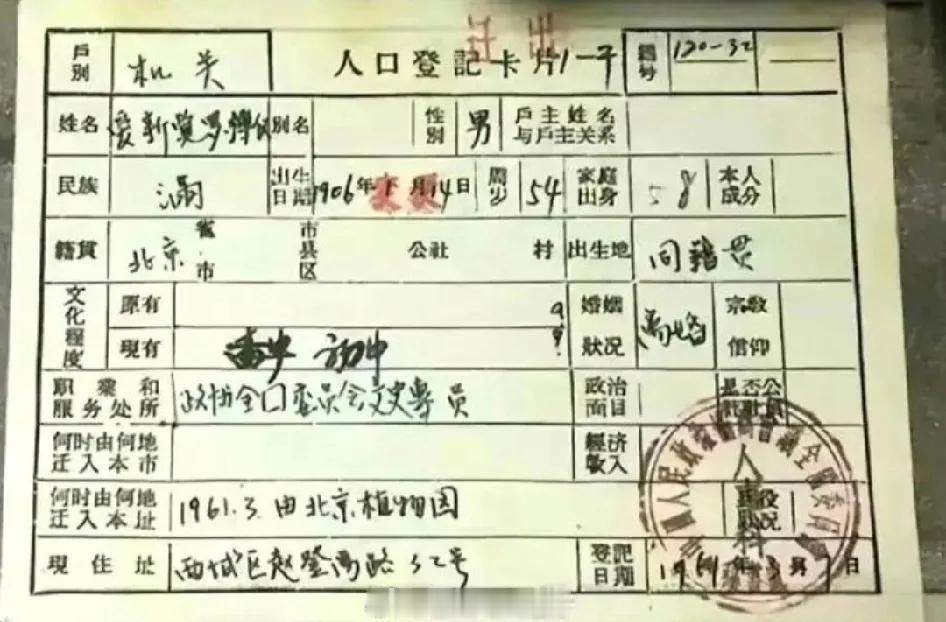 迁出
户别 机关 人口登記卡片 1-平 編号 120-32
姓名 爱新觉罗·溥仪 别名 性别 男 户主姓名与户主关系
民族 满 出生日期 1906年1月14日 周岁 54 家庭出身 本人成分
籍貫 北京 省市 市县区 公社 村 出生地 同籍贯
文化程度 原有 婚姻状况 宗教信仰
現有 初中
职業和服务处所 政协全国委员会文史專员 政治面目
何时由何地迁入本市 經济收入
何时由何地迁入本址 1961.3.由北京植物园
現住址 西城区赵登禹路32号 登記日期 1961年3月9日
人事科